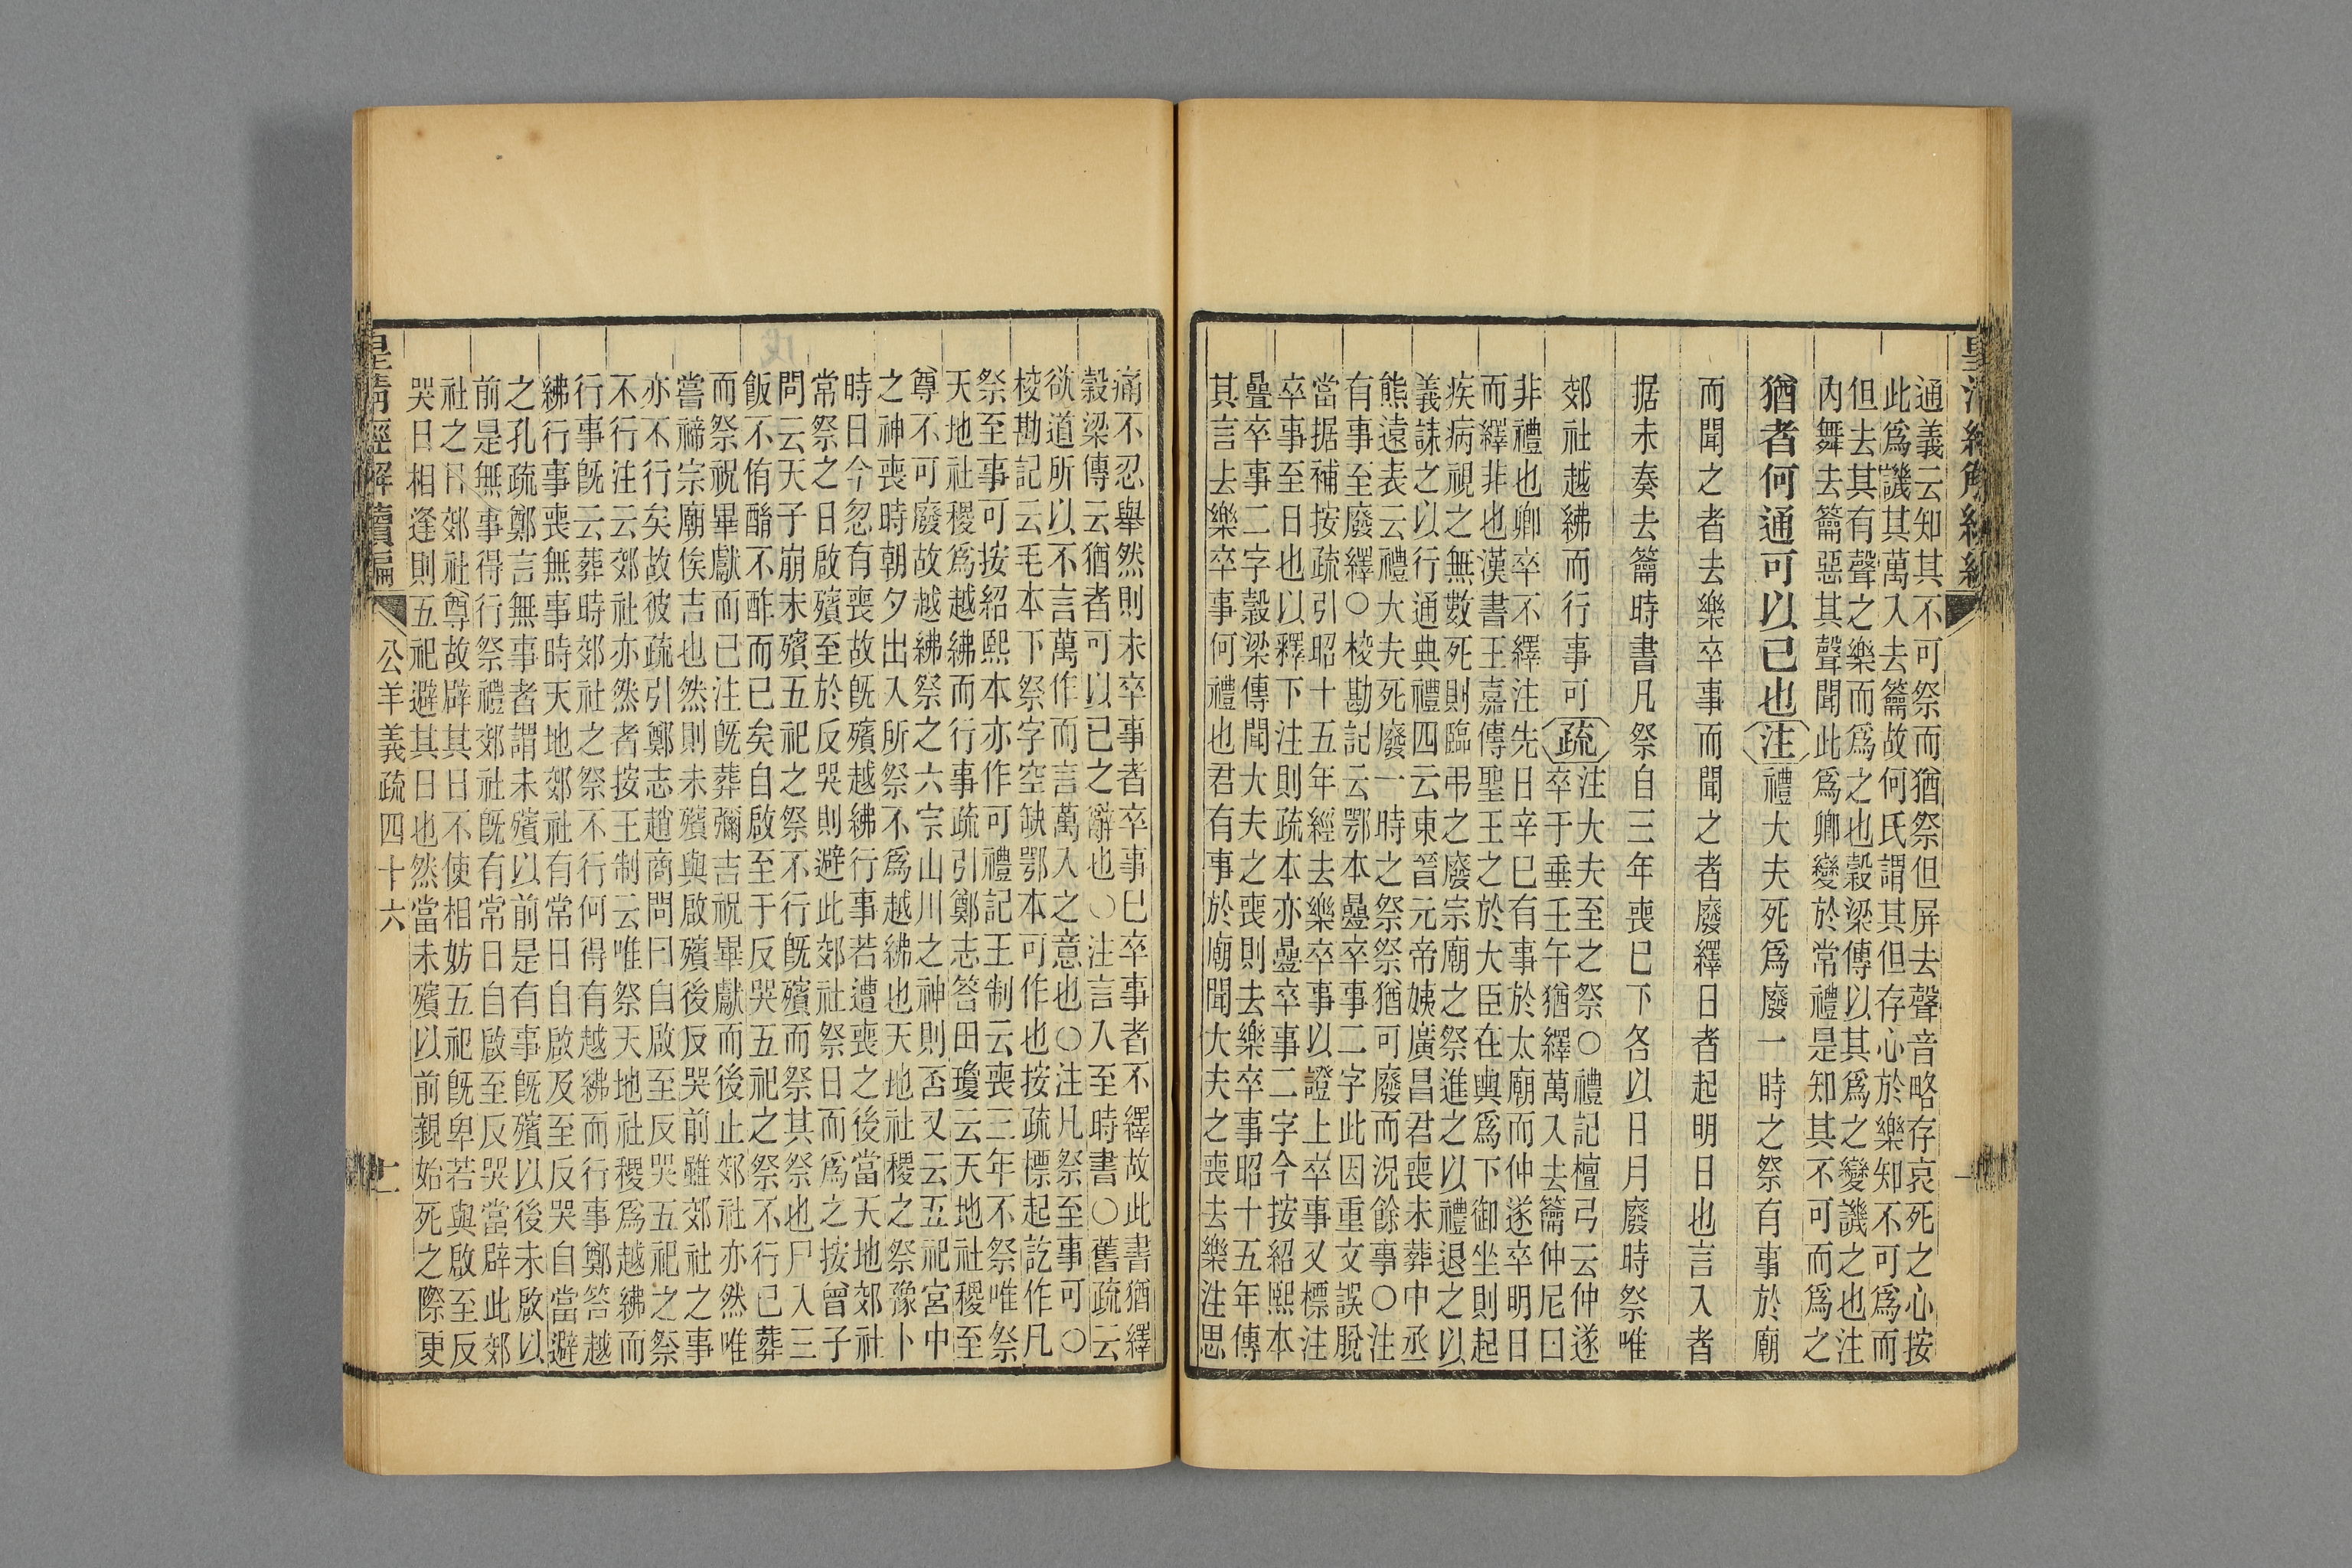 通義云知其不可祭而猶祭但屏去聲音略存哀死之心按
此爲譏其萬入去籥故何氏謂其但存心於樂知不可爲而
但去其有聲之樂而爲之也穀梁傳以其爲之變譏之也注
內舞去籥惡其聲聞此爲卿變於常禮是知其不可而爲之
猶者何通可以已也注禮大夫死爲廢一時之祭有事於廟
而聞之者去樂卒事而聞之者廢繹日者起明日也言入者
据未奏去籥時書凡祭自三年喪已下各以日月廢時祭唯
郊社越紼而行事可疏
注大夫至之祭○禮記檀弓云仲遂
卒于垂壬午猶繹萬入去籥仲尼曰
非禮也卿卒不繹注先日辛巳有事於太廟而仲遂卒明日
而繹非也漢書王嘉傳聖王之於大臣在輿爲下御坐則起
疾病視之無數死則臨弔之廢宗廟之祭進之以禮退之以
義誄之以行通典禮四云東晉元帝姨廣昌君喪未葬中丞
熊遠表云禮大夫死廢一時之祭祭猶可廢而況餘事○注
有事至廢繹○校勘記云鄂本疊卒事二字此因重文誤脫
當据補按疏引昭十五年經去樂卒事以證上卒事又標注
卒事至日也以釋下注則疏本亦疊卒事二字今按紹熙本
疊卒事二字穀梁傳聞大夫之喪則去樂卒事昭十五年傳
其言去樂卒事何禮也君有事於廟聞大夫之喪去樂注思
痛不忍舉然則未卒事者卒事已卒事者不繹故此書猶繹
穀梁傳云猶者可以已之辭也○注言入至時書○舊疏云
欲道所以不言萬作而言萬入之意也○注凡祭至事可○
校勘記云毛本下祭字空缺鄂本可作也按疏標起訖作凡
祭至事可按紹熙本亦作可禮記王制云喪三年不祭唯祭
天地社稷爲越紼而行事疏引鄭志荅田瓊云天地社稷至
尊不可廢故越紼祭之六宗山川之神則否又云五祀宮中
之神喪時朝夕出入所祭不爲越紼也天地社稷之祭豫卜
時日今忽有喪故旣殯越紼行事若遭喪之後當天地郊社
常祭之日啟殯至於反哭則避此郊社祭日而爲之按曾子
問云天子崩未殯五祀之祭不行旣殯而祭其祭也尸入三
飯不侑酳不酢而已矣自啟至于反哭五祀之祭不行已葬
而祭祝畢獻而已注旣葬彌吉祝畢獻而後止郊社亦然唯
嘗禘宗廟俟吉也然則未殯與啟殯後反哭前雖郊社之事
亦不行矣故彼疏引鄭志趙商問曰自啟至反哭五祀之祭
不行注云郊社亦然者按王制云唯祭天地社稷爲越紼而
行事旣云葬時郊社之祭不行何得有越紼而行事鄭荅越
紼行事喪無事時天地郊社有常日自啟及至反哭自當避
之孔疏鄭言無事者謂未殯以前是有事旣殯以後未啟以
前是無事得行祭禮郊社旣有常日自啟至反哭當辟此郊
社之日郊社尊故辟其日不使相妨五祀旣卑若與啟至反
哭日相逢則五祀避其日也然當未殯以前親始死之際更
皇清經解續編
公羊義疏四十六
二